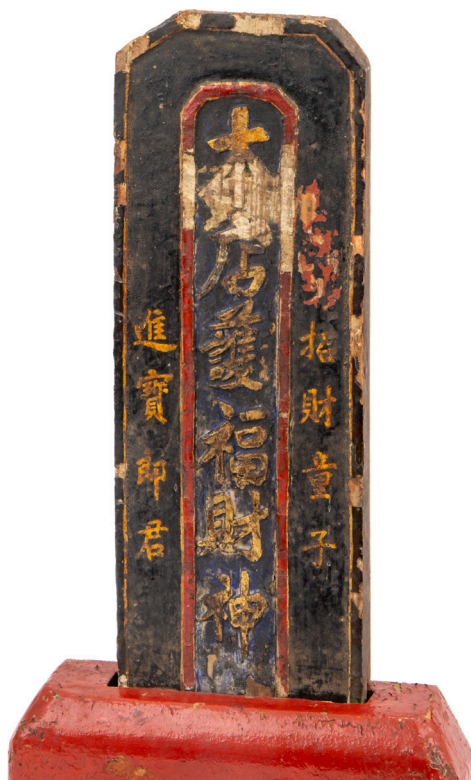 招財童子
店護福財神
進寶郎君